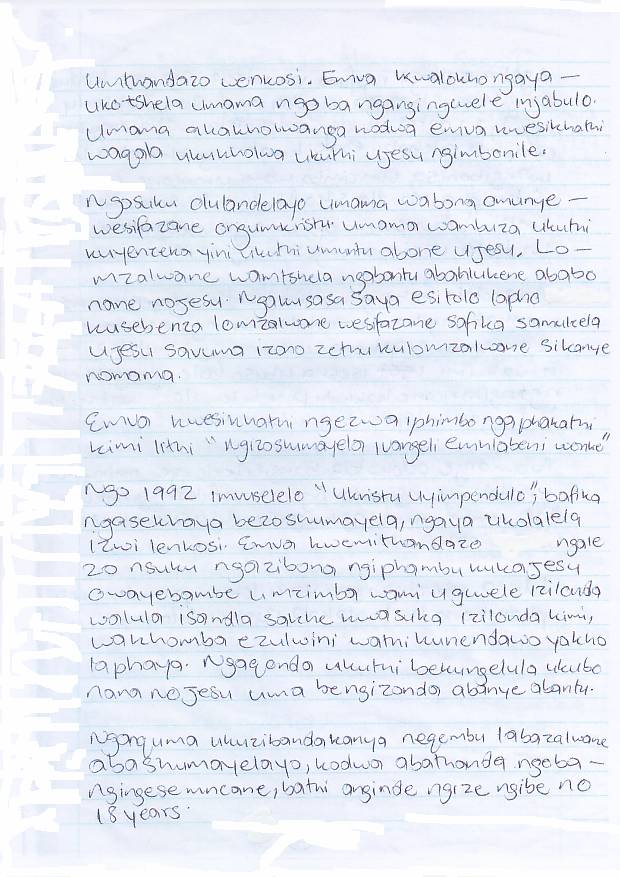 Umthandazo wenkosi. Emva kwalokho ngaya –
ukotshela umama ngoba ngangingwele injabulo.
Umama akakholwanga kodwa emva kwesikhathi
waqala ukukholwa ukuthi uJesu ngimbonile.
Ngosuku olulandelayo umama wabona omunye –
wesifazane ongumkristu. Umama wambuza ukuthi
kuyenzeka yini ukuthi umuntu abone uJesu. Lo –
mzalwane wamtshela ngabantu abahlukene ababo
nane noJesu. Ngakusasa saya esitolo lapho
kusebenza lomzalwane wesifazane safika samukela
uJesu savuma izono zethu kulomzalwane sikanye
nomama.
Emva kwesikhathi ngezwa iphimbo ngaphakathi
kimi lithi "Ngizoshumayela ivangeli emhlabeni wonke"
Ngo 1992 imvuselelo "Ukristu uyimpendulo"; bafika
ngasekhaya bezoshumayela, ngaya ukolalela
izwi lenkosi. Emva kwemithandazo ngale
20 nsuku ngazibona ngiphambu kukaJesu
owayebambe umzimba wami ugwele izilonda
walula isandla sakhe kwasuka izilonda kimi,
wakhomba ezulwini wathi kunendawo yakho
laphaya. Ngaqonda ukuthi bekungelula ukubo
nana noJesu uma bengizonda abanye abantu.
Nganquma ukuzibandakanya neqembu labazalwane
abashumayelayo, kodwa abathanda ngoba –
ngingese mncane, bathi anginde ngize ngibe no
18 years.